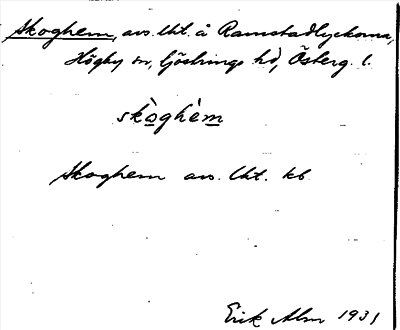 Skoghem, avs. lht. å Ramstadlyckorna,
Högby sn, Göstrings hd, Österg. l.
skòghèm
Skoghem avs. lht. kb
Erik Alm 1931